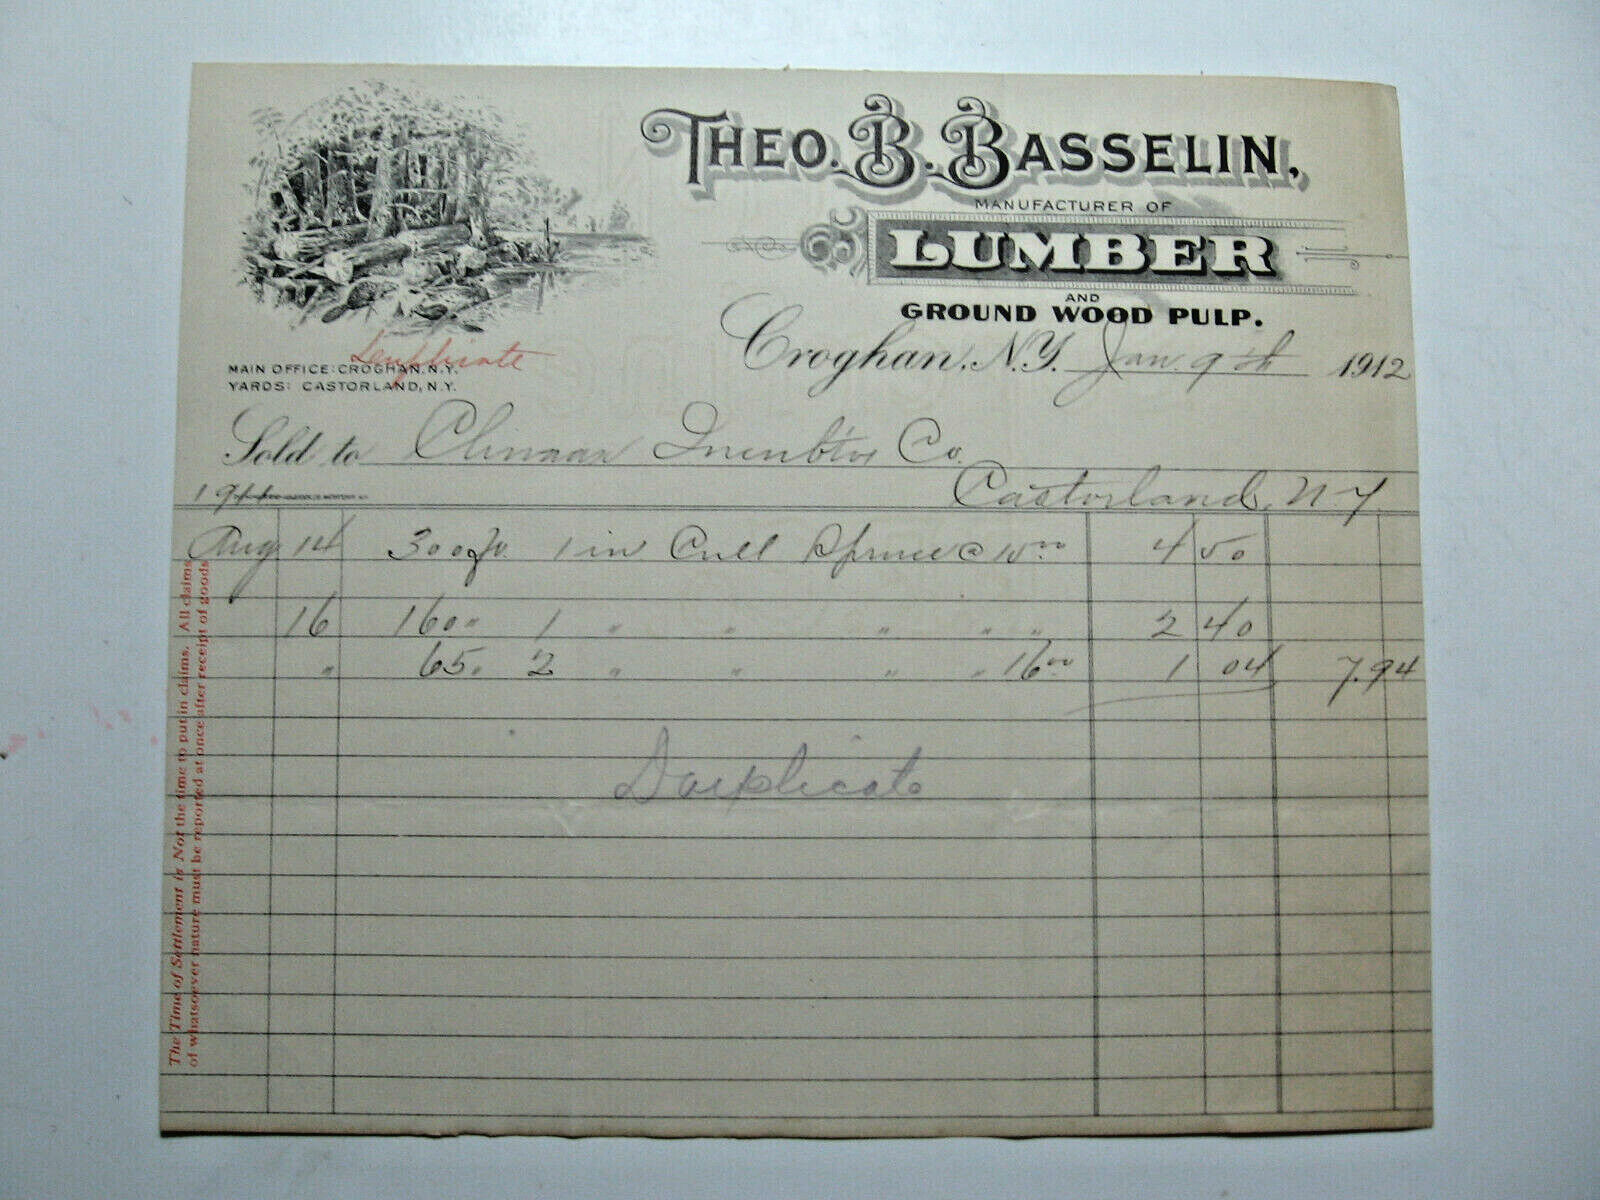 THEO. B. BASSELIN,
MANUFACTURER OF
LUMBER
AND
GROUND WOOD PULP.
Duplicate
MAIN OFFICE: CROGHAN, N.Y.
YARDS: CASTORLAND, N.Y.
Croghan, N.Y. Jan. 9th 1912
Sold to Climax Incub'tor Co.
1911 Castorland, N-Y
Aug 14 300 ft. 1 in Cull Spruce @ 15.00 4 50
16 160 " 1 " " " " " 2 40
" 65 " 2 " " " " 16.00 1 04 7.94
Duplicate
The Time of Settlement is Not the time to put in claims. All claims
of whatsoever nature must be reported at once after receipt of goods